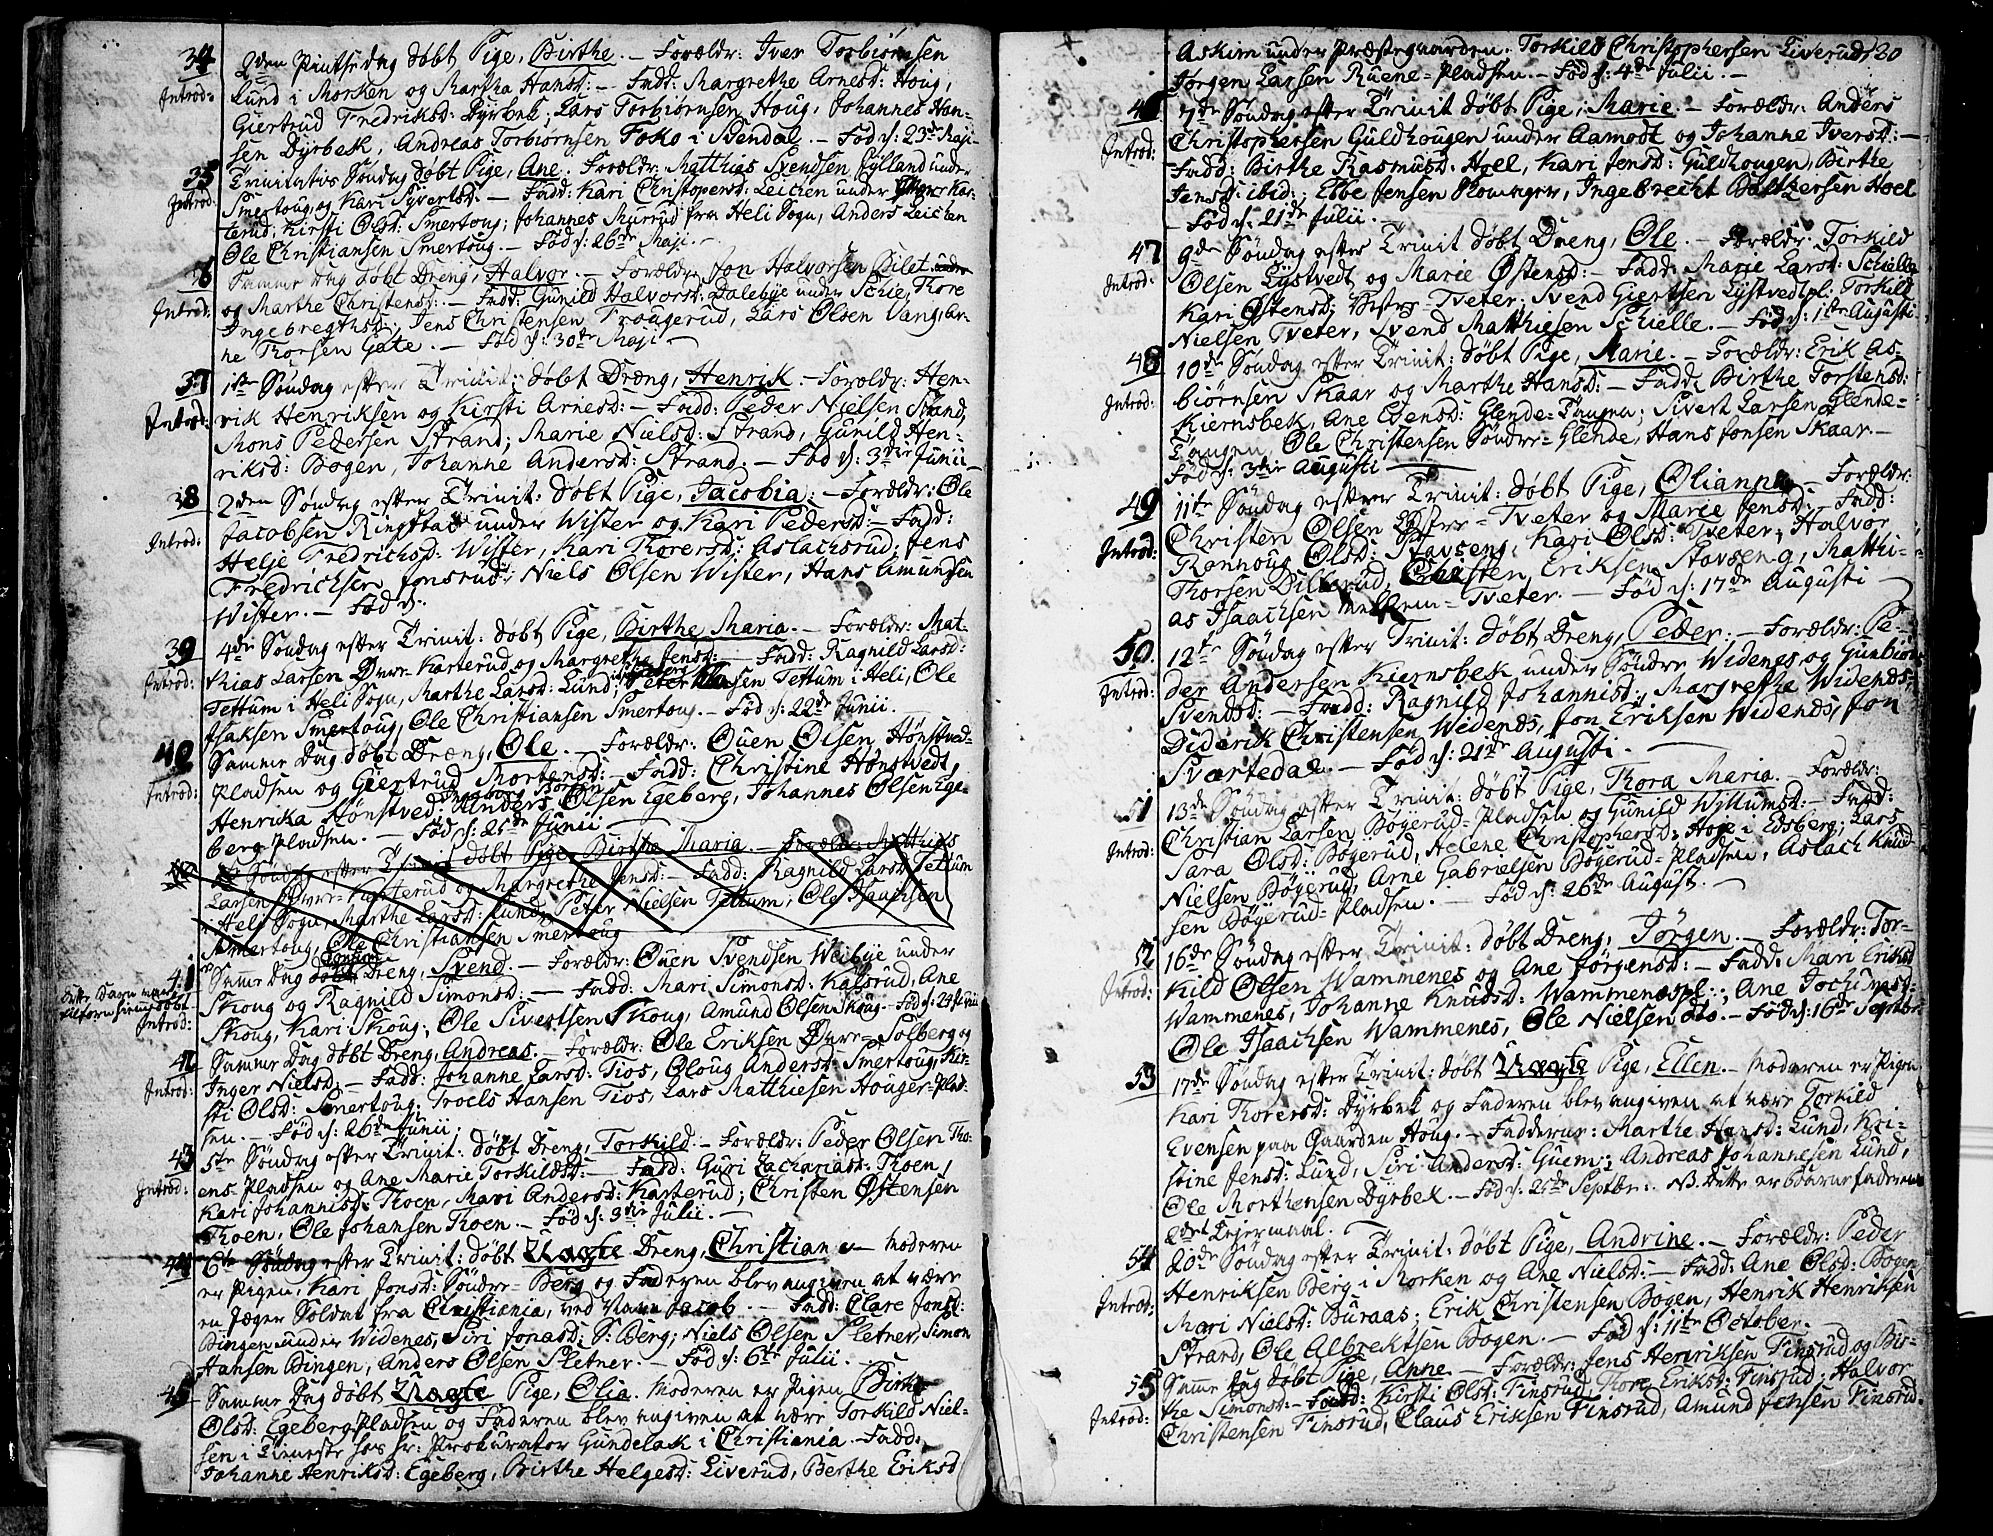 34
2den Pintsedag døbt Pige, Birthe. – Forældr: Iver Torbiørnsen
Introd:
Lund i Morken og Martha Hansd: – Fadd: Margrethe Arnesd: Houg,
Giertrud Fredriksd: Dyrbek, Lars Torbiørnsen Houg, Johannes Han-
sen Dyrbek, Andreas Torbiørnsen Foko i – Fød d: 23de Maji –
35
Trinitatis Søndag døbt Pige, Ane. Forældr: Matthias Svendsen Jylland under
Introd:
Smertoug og Kari Syvertsd: – Fadd: Kari Christopersd: Leichen under Kas-
terud, Kirsti Olsd: Smertoug, Johannes Murrud fra Heli Sogn, Anders Leichen
Ole Christiansen Smertoug. – Fød d: 26de Maji. –
36
Samme Dag døbt Dreng, Halvor. – Forældr: Jon Halvorsen Bilet under
Introd:
og Marthe Christensd: – Fadd: Gunild Halvorsd: Dalebye under Schie, Thore
Ingebregthsd:, Jens Christensen Trougerud, Lars Olsen Vang, Ar-
ne Thorsen Gate. – Fød d: 30te Maji –
37
1ste Søndag efter Trinit: døbt Dreng, Henrik. – Forældr: Hen-
Introd:
rik Henriksen og Kirsti Arnesd: – Fadd: Peder Nielsen Strand,
Mons Pedersen Strand; Marie Nielsd: Strand, Gunild Hen-
riksd: Bogen, Johanne Andersd: Strand. – Fød d: 3die Junii –
38
2den Søndag efter Trinit: døbt Pige, Jacobia. – Forældr: Ole
Introd:
Jacobsen Ringstad under Wister og Kari Pedersd: – Fadd:
Helje Fredrichsd: Wister, Kari Thorersd: Aslachsrud, Jens
Fredrichsen Jonsrud, Niels Olsen Wister, Hans Amundsen
Wister. – Fød d:
39
4de Søndag efter Trinit: døbt Pige, Birthe Maria. – Forældr: Mat-
Introd:
thias Larsen Øvre-Kasterud og Margrethe Jensd: – Fadd: Ragnild Larsd:
Tettum i Heli Sogn, Marthe Larsd: Lund; Peter Nielsen Tettum i Heli, Ole
Isaksen Smertoug, Ole Christiansen Smertoug. – Fød d: 22de Junii. –
40
Samme Dag døbt Dreng, Ole. – Forældr: Ouen Olsen Hønstved-
Introd:
Pladsen og Giertrud Mortensd: – Fadd: Christine Hønstvedt,
Henrika Hønstved, Anders Olsen Egeberg, Johannes Olsen Ege-
berg-Pladsen. – Fød d: 25de Junii –
Søndag efter Trinit døbt Pige Birthe Maria. – Forældr: Matthias
Larsen Øvre-Kasterud og Margrethe Jensd: – Fadd: Ragnild Larsd: Tettum
i Heli Sogn, Marthe Larsd: Lund, Peter Nielsen Tettum, Ole Isaachsen
Smertoug, Ole Christiansen Smertoug
41
Samme Dag døbt Dreng, Svend. – Forældr: Ouen Svendsen Weibye under
Dette Barn var
tilforn hiemmedøbt
Introd:
Skoug og Ragnild Simonsd: – Fadd: Mari Simonsd: Kalsrud, Ane
Skoug, Kari Skoug, Ole Sivertsen Skoug, Amund Olsen Skoug – Fød d: 24 Junii
42
Samme Dag døbt Dreng, Andreas. – Forældr: Ole Eriksen Øvre-Solberg og
Introd:
Inger Nielsd: – Fadd: Johanne Larsd: Tios, Oloug Andersd: Smertoug, Kir-
sti Olsd: Smertoug, Troels Hansen Tios, Lars Matthiesen Houger-Plad-
sen. – Fød d: 26de Junii.
43
5te Søndag efter Trinit: døbt Dreng, Torkild. – Forældr: Peder Olsen Tho-
Introd:
ens-Pladsen og Ane Marie Torkildsd: – Fadd: Guri Zachariasd: Thoen,
Kari Johannisd: Thoen, Mari Andersd: Kasterud; Christen Østensen
Thoen, Ole Johansen Thoen. – Fød d: 3die Julii. –
44
6te Søndag efter Trinit: døbt Uægte Dreng, Christian – Moderen
er Pigen, Kari Jonsd: Søndre-Berg og Faderen blev angiven at være
en Jæger Soldat fra Christiania, ved Navn Jacob. – Fadd: Clare Jonsd:
Dingen under Widenes, Siri Jonasd: S: Berg; Niels Olsen Sletner, Simon
Hansen Bingen, Anders Olsen Sletner. – Fød d: 6te Julii. –
45
Samme Dag døbt Uægte Pige, Olia. Moderen er Pigen Birthe
Olsd: Egeberg-Pladsen og Faderen blev angiven at være Torkild Niel-
sen i Tieneste hos Hr: Prokurator Gundelak i Christiania. – Fadd:
Johanne Henriksd: Egeberg, Birthe Helgesd: Liverud, Berthe Eriksd
Askim under Præstegaarden. Torkild Christophersen Liverud, 20
Jørgen Larsen Ruene-Pladsen. – Fød d: 4de Julii. –
46
7de Søndag efter Trinit døbt Pige, Marie – Forældr: Anders
Introd:
Christophersen Guldhougen under Aamodt og Johanne Iversd: –
Fadd: Birthe Rasmusd: Hoel, Kari Jensd: Guldhougen, Birthe
Jensd: ibid:, Ebbe Jensen Romager, Ingebrecht Baltzersen Hoel
– Fød d: 21de Julii. –
47
9de Søndag efter Trinit døbt Dreng, Ole. – Forældr: Torkild
Introd:
Olsen Lystvedt og Marie Østensd: – Fadd: Marie Larsd: Schielle
Kari Østensd: Vester-Tveter; Svend Giertsen Lystvedtpl: Torkild
Nielsen Tveter, Svend Matthiesen Schielle. – Fød d: 1ste Augusti
48
10de Søndag efter Trinit: døbt Pige, Marie. – Forældr: Erik As-
Introd:
biørnsen Skaar og Marthe Hansd: – Fadd: Birthe Torstensd:
Kiernsbek, Ane Evensd: Glende-Tangen; Sivert Larsen Glende-
Tangen, Ole Christensen Søndre-Glende, Hans Jonsen Skaar. –
Fød d: 3die Augusti –
49
11te Søndag efter Trinit: døbt Pige, Olianna – Forældr:
Introd:
Christen Olsen Øster-Tveter og Marie Jensd: – Fadd:
Ronnoug Olsd: Stavseng, Kari Olsd: Tveter, Halvor
Thorsen Dillerud, Christen Eriksen Stavseng, Matthi-
as Isaachsen Mellem-Tveter. – Fød d: 17de Augusti –
50
12te Søndag efter Trinit: døbt Dreng, Peder. – Forældr: Pe-
Introd:
der Andersen Kiernsbek under Søndre Widenes og Gunbiør
Svendsd: – Fadd: Ragnild Johannisd:, Margrethe Widenes,
Diderik Christensen Widenes, Jon Eriksen Widenes, Jon
Svartedal. – Fød d: 21de Augusti. –
51
13de Søndag efter Trinit: døbt Pige, Thora Maria. – Forældr:
Introd:
Christian Larsen Bøgerud-Pladsen og Gunild Willumsd: – Fadd:
Sara Olsd: Bøgerud, Helene Christophersd: Hoge i Edsberg; Lars
Nielsen Bøgerud, Arne Gabrielsen Bøgerud-Pladsen, Aslach Knud-
sen Bøgerud-Pladsen. – Fød d: 26de August. –
52
16de Søndag efter Trinit: døbt Dreng, Jørgen. – Forældr: Tor-
Introd:
kild Olsen Wammenes og Ane Jørgensd: – Fadd: Mari Eriksd
Wammenes, Johanne Knudsd: Wammenespl:, Ane Jochumsd:
Ole Isaachsen Wammenes, Ole Nielsen do. – Fød d: 16de Septbr.
53
17de Søndag efter Trinit: døbt Uægte Pige, Ellen. – Moderen er Pigen
Kari Thorersd: Dyrbek og Faderen blev angiven at være Torkild
Evensen paa Gaarden Houg. – Fadderne: Marthe Hansd: Lund, Kri-
stine Jensd: Lund, Siri Andersd: Guem; Andreas Johannesen Lund,
Ole Morthensen Dyrbek. – Fød d: 25de Septbr. NB. Dette er Faderens
2det Lejermaal. –
54
20de Søndag efter Trinit: døbt Pige, Andrine. – Forældr: Peder
Introd:
Henriksen Berg i Morken og Ane Nielsd: – Fadd: Ane Olsd: Bogen
Mari Nielsd: Buraas; Erik Christensen Bogen, Henrik Henriksen
Strand, Ole Albrektsen Bogen. – Fød d: 11te October. –
55
Samme Dag døbt Pige, Anne. – Forældr: Jens Henriksen Finsrud og Bir-
Introd:
the Simonsd: – Fadd: Kirsti Olsd: Finsrud, Thore Eriksd: Finsrud; Halvor
Christensen Finsrud, Claus Eriksen Finsrud, Amund Jensen Finsrud.